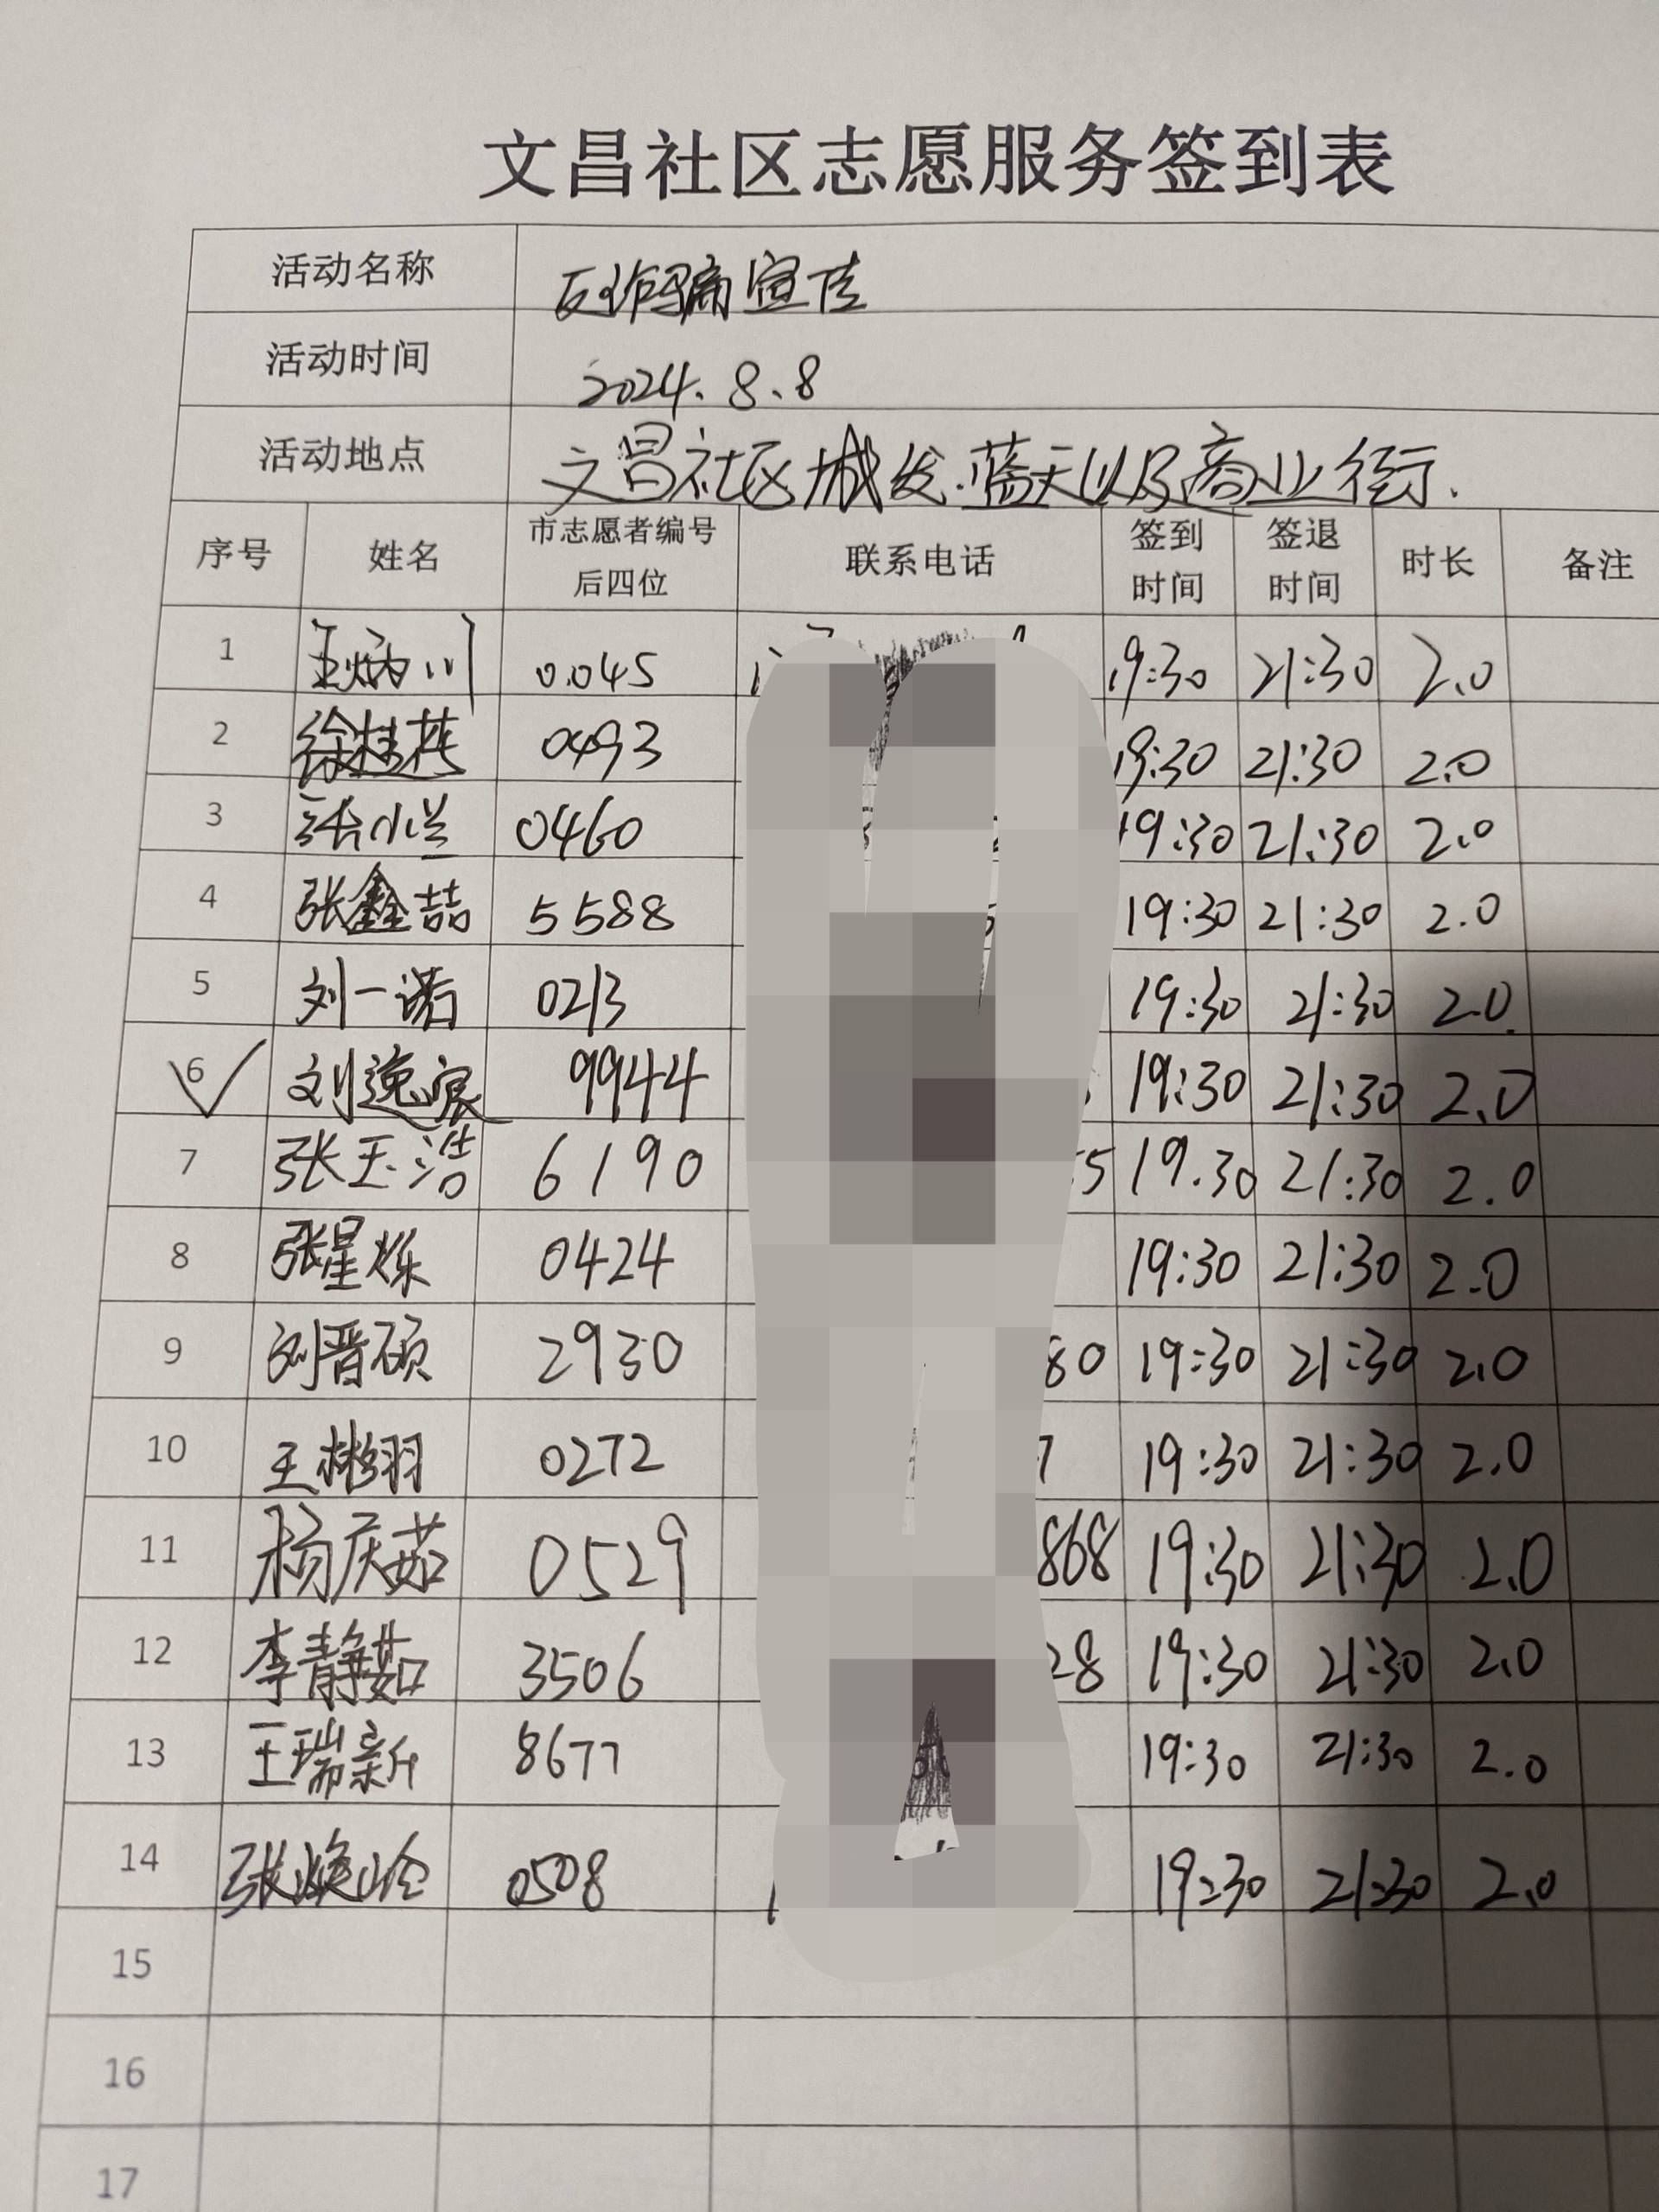 文昌社区志愿服务签到表
活动名称 反诈骗宣传
活动时间 2024.8.8
活动地点 文昌社区城发.蓝天以及商业街.
序号 姓名 市志愿者编号后四位 联系电话 签到时间 签退时间 时长 备注
1 王炳川 0.045 19:30 21:30 2.0
2 徐桂燕 0493 19:30 21:30 2.0
3 张小兰 0460 19:30 21:30 2.0
4 张鑫喆 5588 19:30 21:30 2.0
5 刘一诺 0213 19:30 21:30 2.0
6 刘逸宸 9944 19:30 21:30 2.0
7 张玉浩 6190 5 19.30 21:30 2.0
8 张星烁 0424 19:30 21:30 2.0
9 刘晋硕 2930 80 19:30 21:30 2.0
10 王彬羽 0272 7 19:30 21:30 2.0
11 杨庆茹 0529 868 19:30 21:30 2.0
12 李静茹 3506 28 19:30 21:30 2.0
13 王瑞新 8677 19:30 21:30 2.0
14 张焕岭 0508 19:30 21:30 2.0
15
16
17